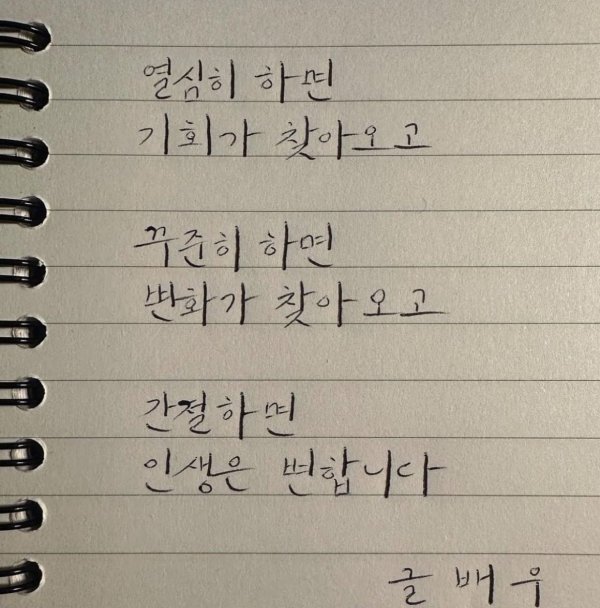 열심히 하면
기회가 찾아오고
꾸준히 하면
변화가 찾아오고
간절하면
인생은 변합니다
글배우